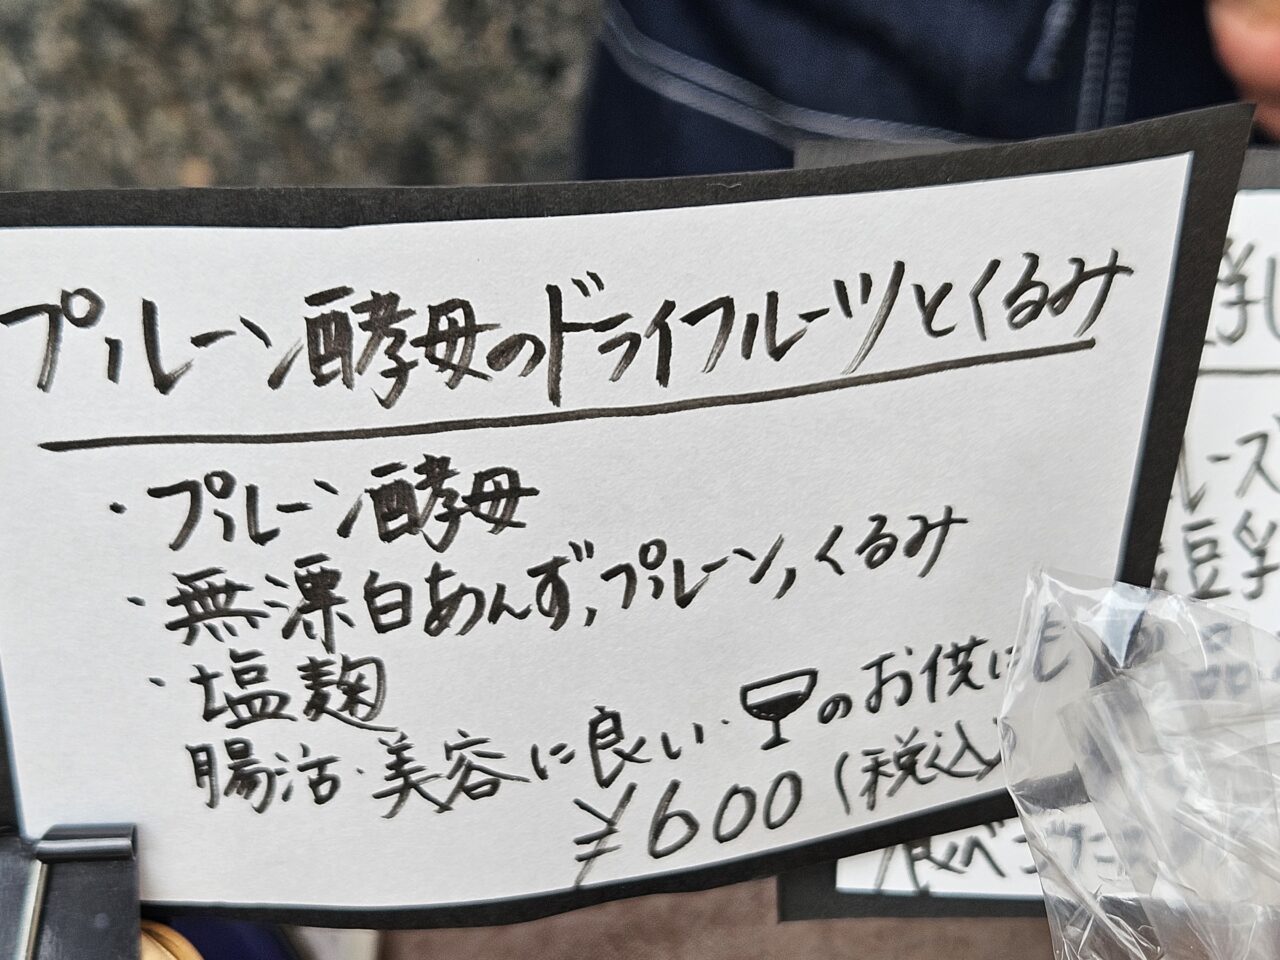 プルーン酵母のドライフルーツとくるみ
・プルーン酵母
・無漂白あんず,プルーン,くるみ
・塩麹
腸活・美容に良い・のお供にも
¥600(税込)
乳
ーズ
豆乳
品
食べ